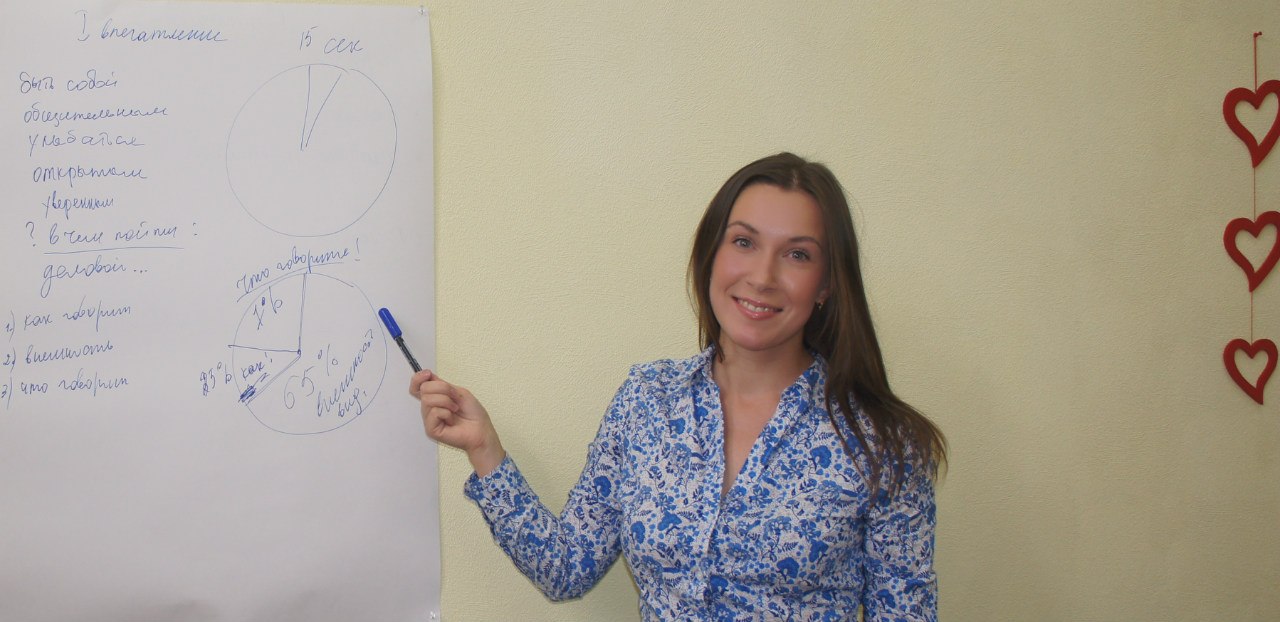 I впечатление
15 сек
быть собой
общительным
улыбаться
открытым
уверенным
? в чем пойти :
деловой...
1) как говорит
2) внешность
3) что говорит
что говорите!
% как!
65%
внешность?
вид!